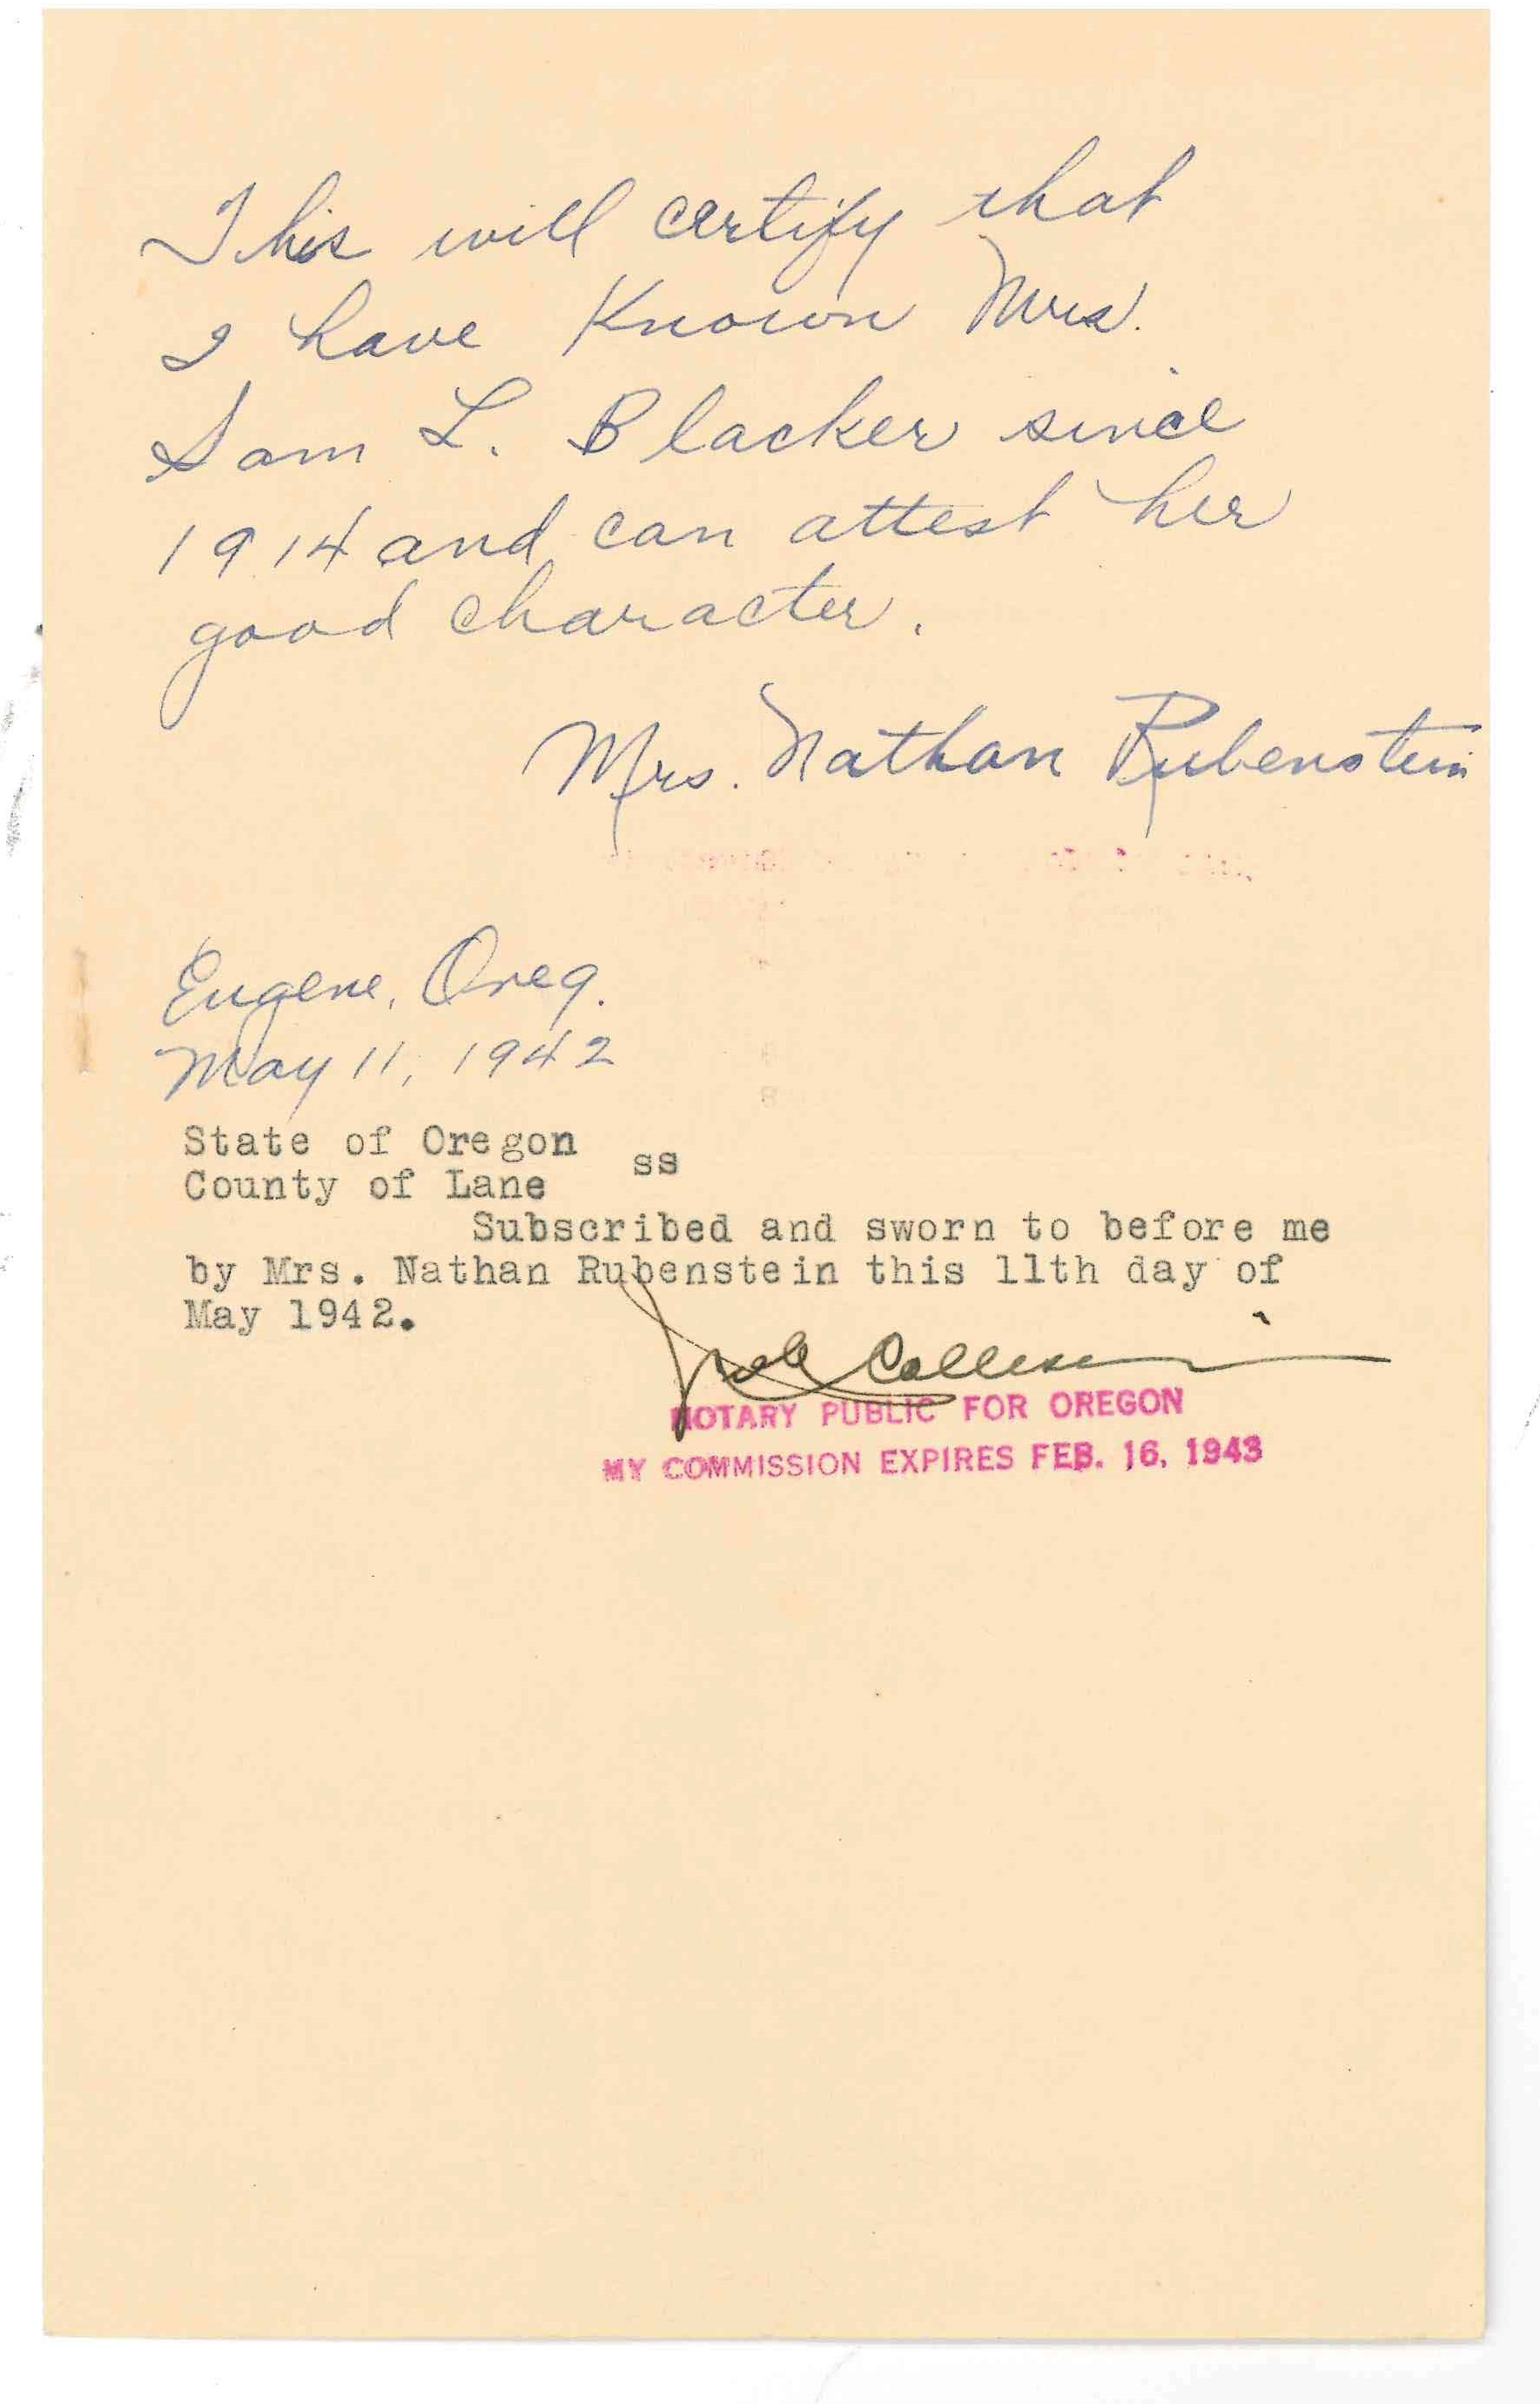 This will certify that
I have Known Mrs.
Sam L. Blacker since
1914 and can attest her
good character.
Mrs. Nathan Rubenstein
Eugene, Oreg.
May 11, 1942
State of Oregon
ss
County of Lane
Subscribed and sworn to before me
by Mrs. Nathan Rubenstein this 11th day of
May 1942.
NOTARY PUBLIC FOR OREGON
MY COMMISSION EXPIRES FEB. 16, 1943